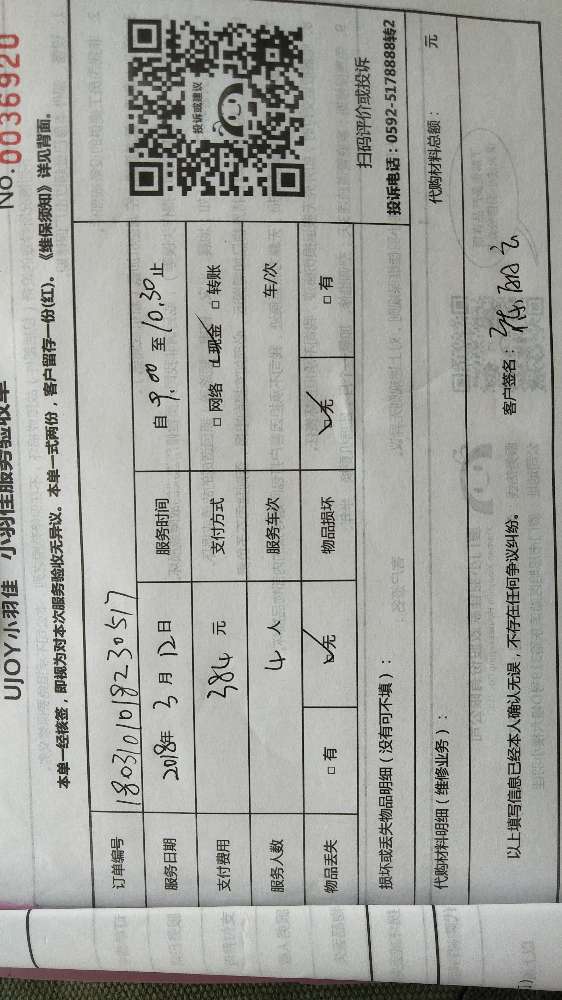 UJOY小羽佳 小羽佳服务验收单
No.0036920
本单一经核签，即视为对本次服务验收无异议。本单一式两份，客户留存一份(红)。《维保须知》详见背面。
订单编号 1803101018230517
投诉或建议
服务日期 2018年 3 月 12 日 服务时间 自 9.00 至 10.30 止
支付费用 384 元 支付方式 □ 网络 ☑ 现金 □ 转账
服务人数 4 人 服务车次 车/次
物品丢失 □ 有 ☑ 无 物品损坏 ☑ 无 □ 有
扫码评价或投诉
投诉电话：0592-5178888转2
损坏或丢失物品明细（没有可不填）：
代购材料明细（维修业务）： 代购材料总额： 元
以上填写信息已经本人确认无误，不存在任何争议纠纷。 客户签名：